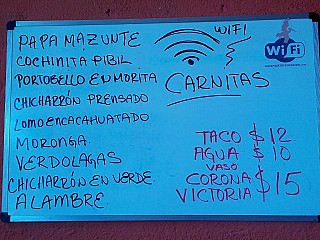 PAPA MAZUNTE
COCHINITA PIBIL
PORTOBELLO EN MORITA
CHICHARRÓN PRENSADO
LOMO ENCACAHUATADO
MORONGA
VERDOLAGAS
CHICHARRÓN EN VERDE
ALAMBRE
WIFI
WiFi
CARNITAS
TACO $12
AGUA $10
VASO
CORONA
VICTORIA $15